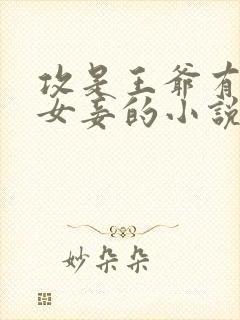 攻是王爷有
女妾的小说
妙朵朵